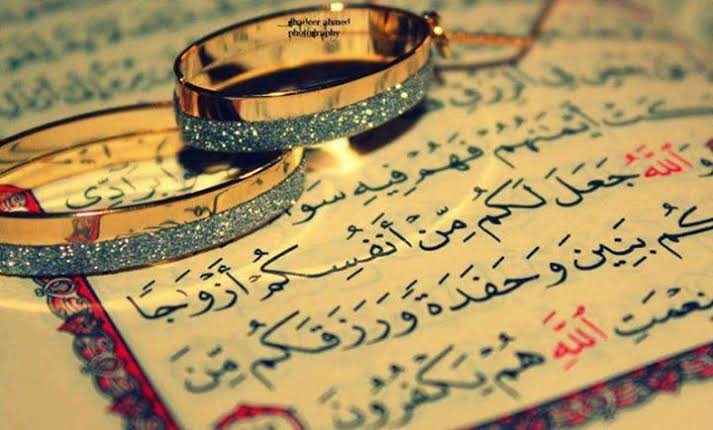 ghadeer ahmed
photography
فِى ٱلرِّزْقِ
بِرَآدِّى
كَتْ أَيْمَٰنُهُمْ فَهُمْ فِيهِ سَوَ
وَٱللَّهُ جَعَلَ لَكُم مِّنْ أَنفُسِكُمْ أَزْوَٰجًا
كُم بَنِينَ وَحَفَدَةً وَرَزَقَكُم مِّنَ
نِعْمَتِ ٱللَّهِ هُمْ يَكْفُرُونَ